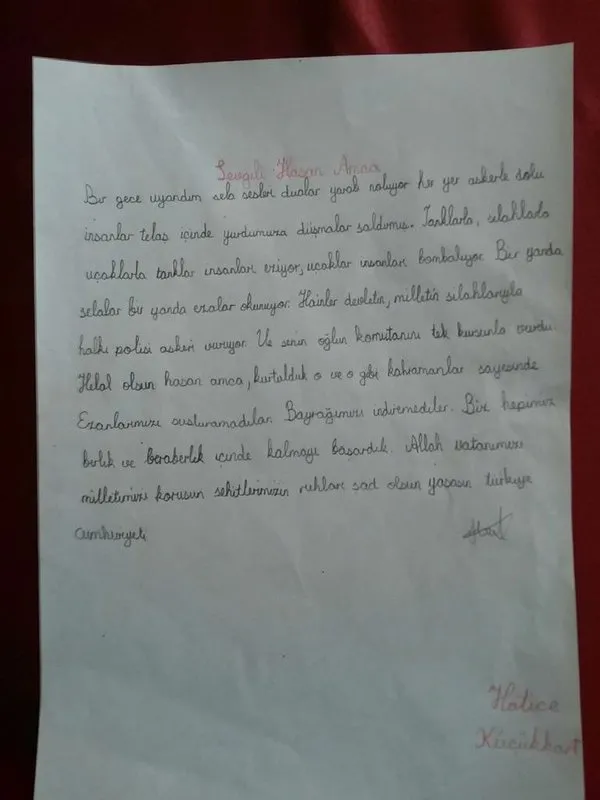 Sevgili Hasan Amca
Bir gece uyandım sela sesleri dualar yarab noluyor her yer askerle dolu
insanlar telaş içinde yurdumuza düşmalar saldırmış. Tanklarla, selahlarla
uçaklarla tanklar insanları eziyor, uçaklar insanları bombalıyor. Bir yanda
selalar bir yanda ezalar okunuyor. Hainler devletin, milletin silahlarıyla
halkı polisi askeri vuruyor. Ve senin oğlun komutanını tek kursunla vurdu.
Helal olsun hasan amca, kurtulduk o ve o gibi kahramanlar sayesinde
Ezanlarımızı susturamadılar. Bayrağımızı indiremediler. Biz hepimiz
birlik ve beraberlik içinde kalmayı başardık. Allah vatanımızı
milletimizi korusun sehitlerimizin ruhları sad olsun yaşasın türkiye
cumhuriyeti
Hatice
Küçükkart